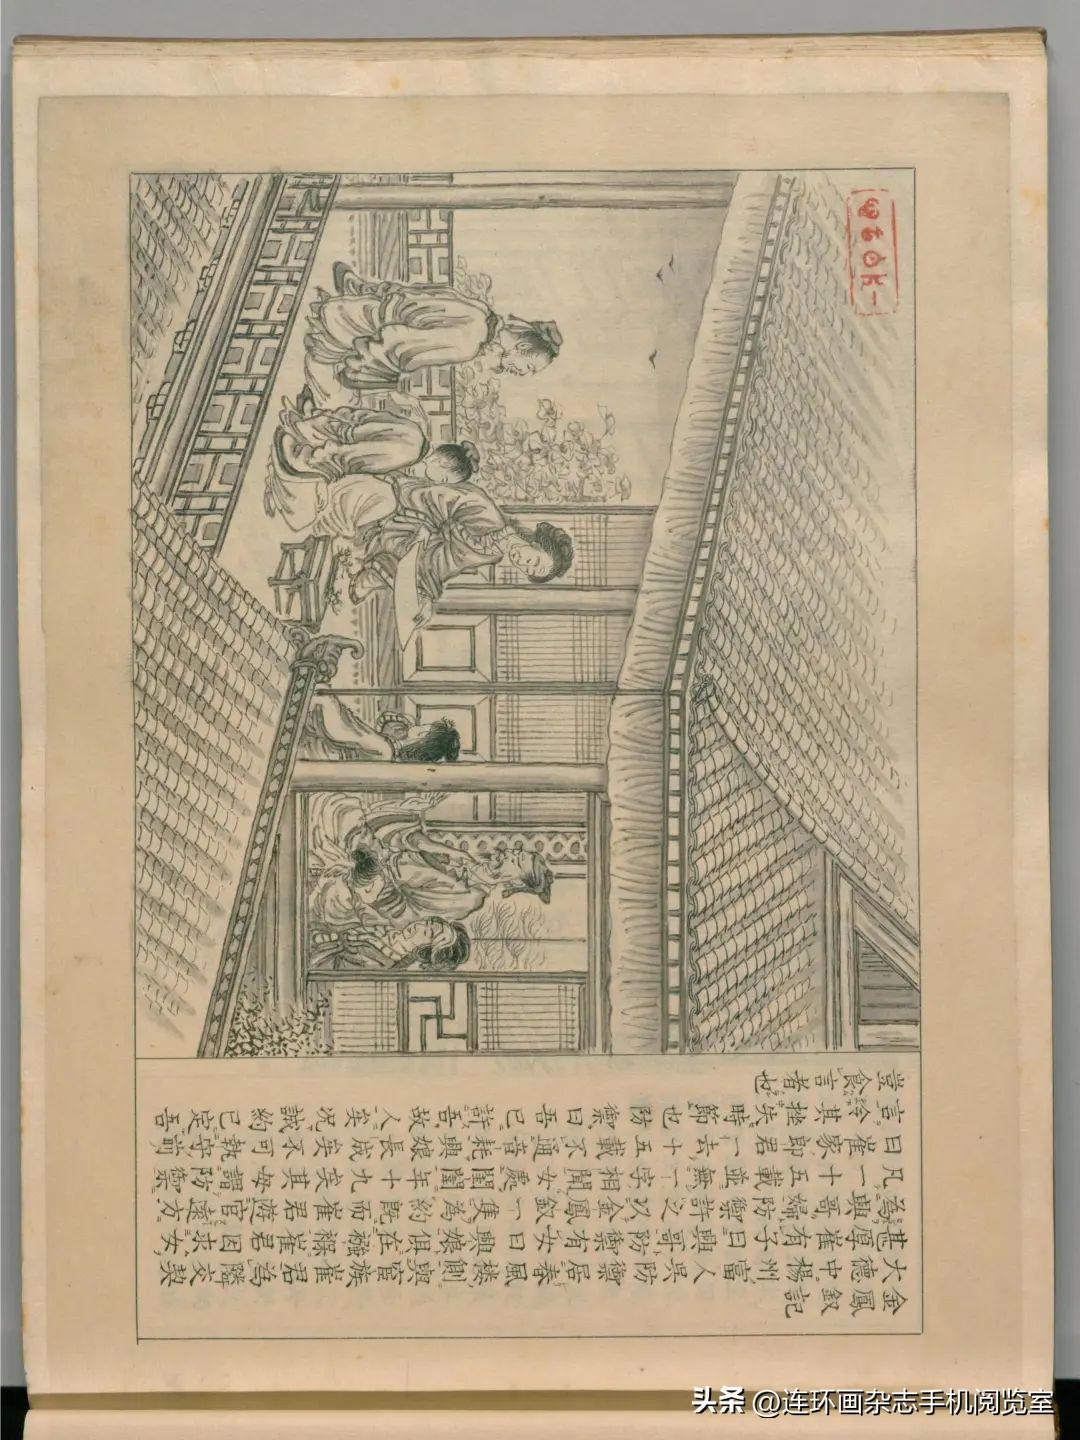 金鳳釵記
大德中楊州富人吳防禦居春風樓側與宦族崔君為隣交契
甚厚崔有子曰興哥防禦有女曰興娘俱在襁褓崔君因求女
為興哥婦防禦許之以金鳳釵一隻為約既而崔君游宦遠方
凡一十五載並無一字相聞女處閨闈年十九矣其母謂防禦
曰崔家郎君一去十五載不通音耗興娘長成矣不可執守前
言令其挫失時節也防禦曰吾已許吾故人矣況誠約已定吾
豈食言者也
头条 @连环画杂志手机阅览室